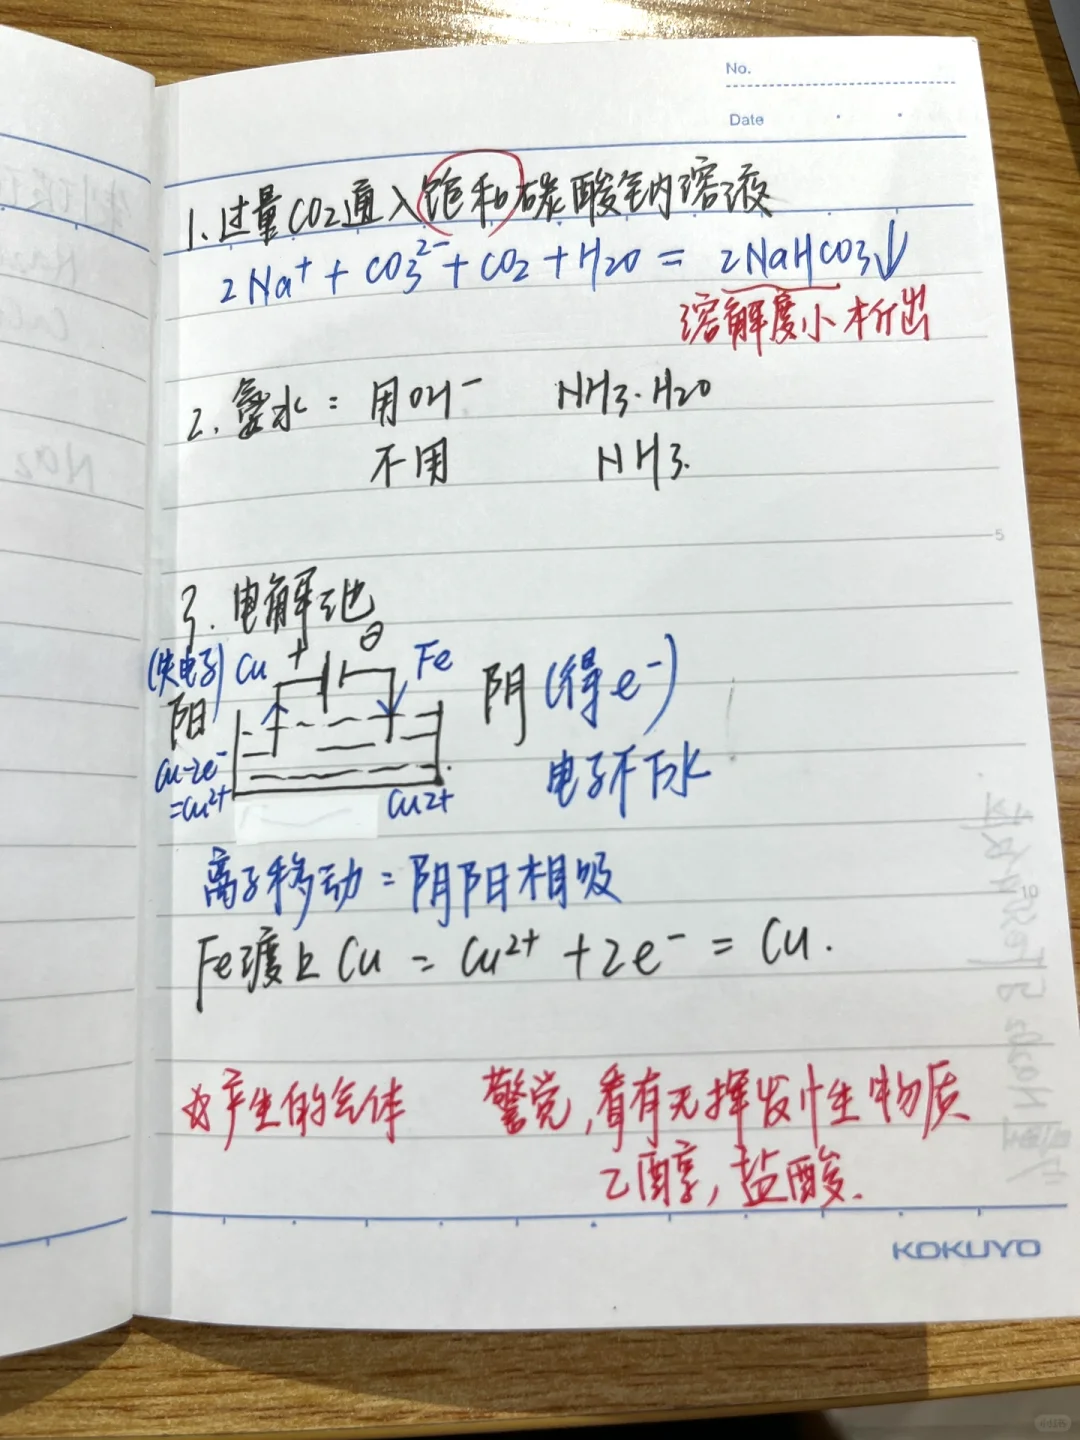 No.
Date
1.过量CO2通入饱和碳酸钠溶液
2Na⁺ + CO3²⁻ + CO2 + H2O = 2NaHCO3↓
溶解度小 析出
2.氨水: 用OH⁻ NH3·H2O
不用 NH3.
5
3.电解池
(失电子) Cu + ⊖ Fe
阳 阴 (得e⁻)
Cu-2e⁻
=Cu²⁺ Cu2+ 电子不下水
离子移动:阴阳相吸
10
Fe渡上Cu: Cu²⁺ + 2e⁻ = Cu.
产生的气体 警觉,看有无挥发性物质
乙醇,盐酸.
KOKUYO